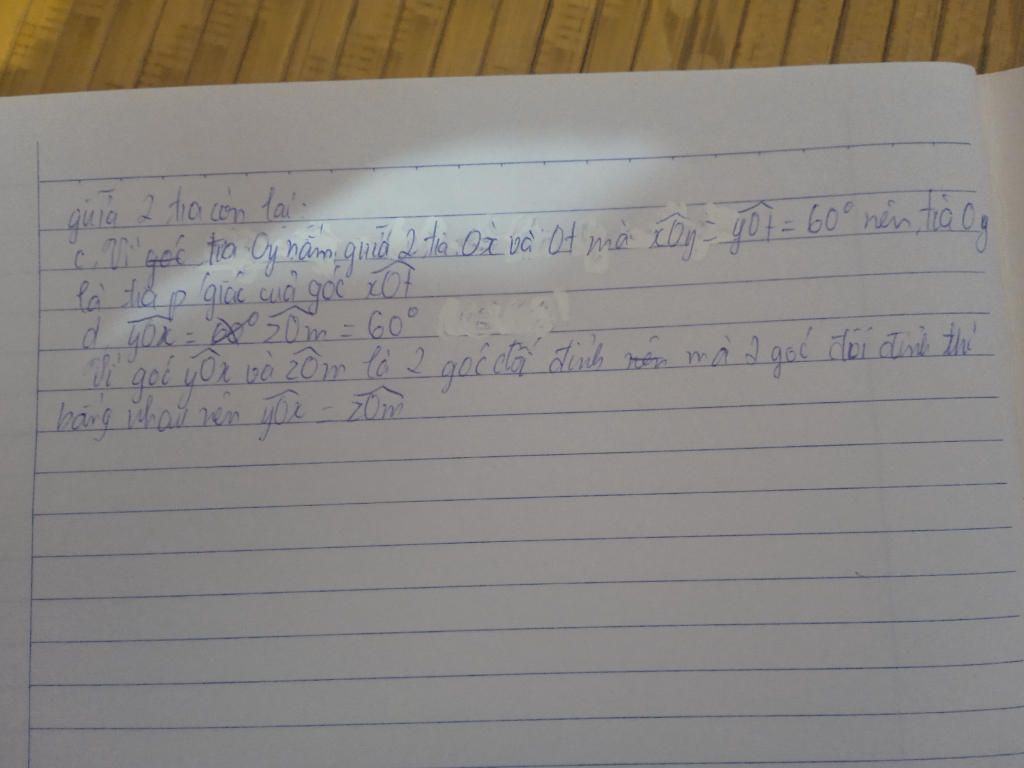 giữa 2 tia còn lại.
c. Vì góc tia Oy nằm giữa 2 tia Ox và Ot mà xOy = yOt = 60° nên tia Oy
là tia p giác của góc xOt
d yOx = 60° zOm = 60°
Vì góc yOx và zOm là 2 góc đđ đỉnh nên mà 2 góc đối đỉnh thì
bằng nhau nên yOx = zOm